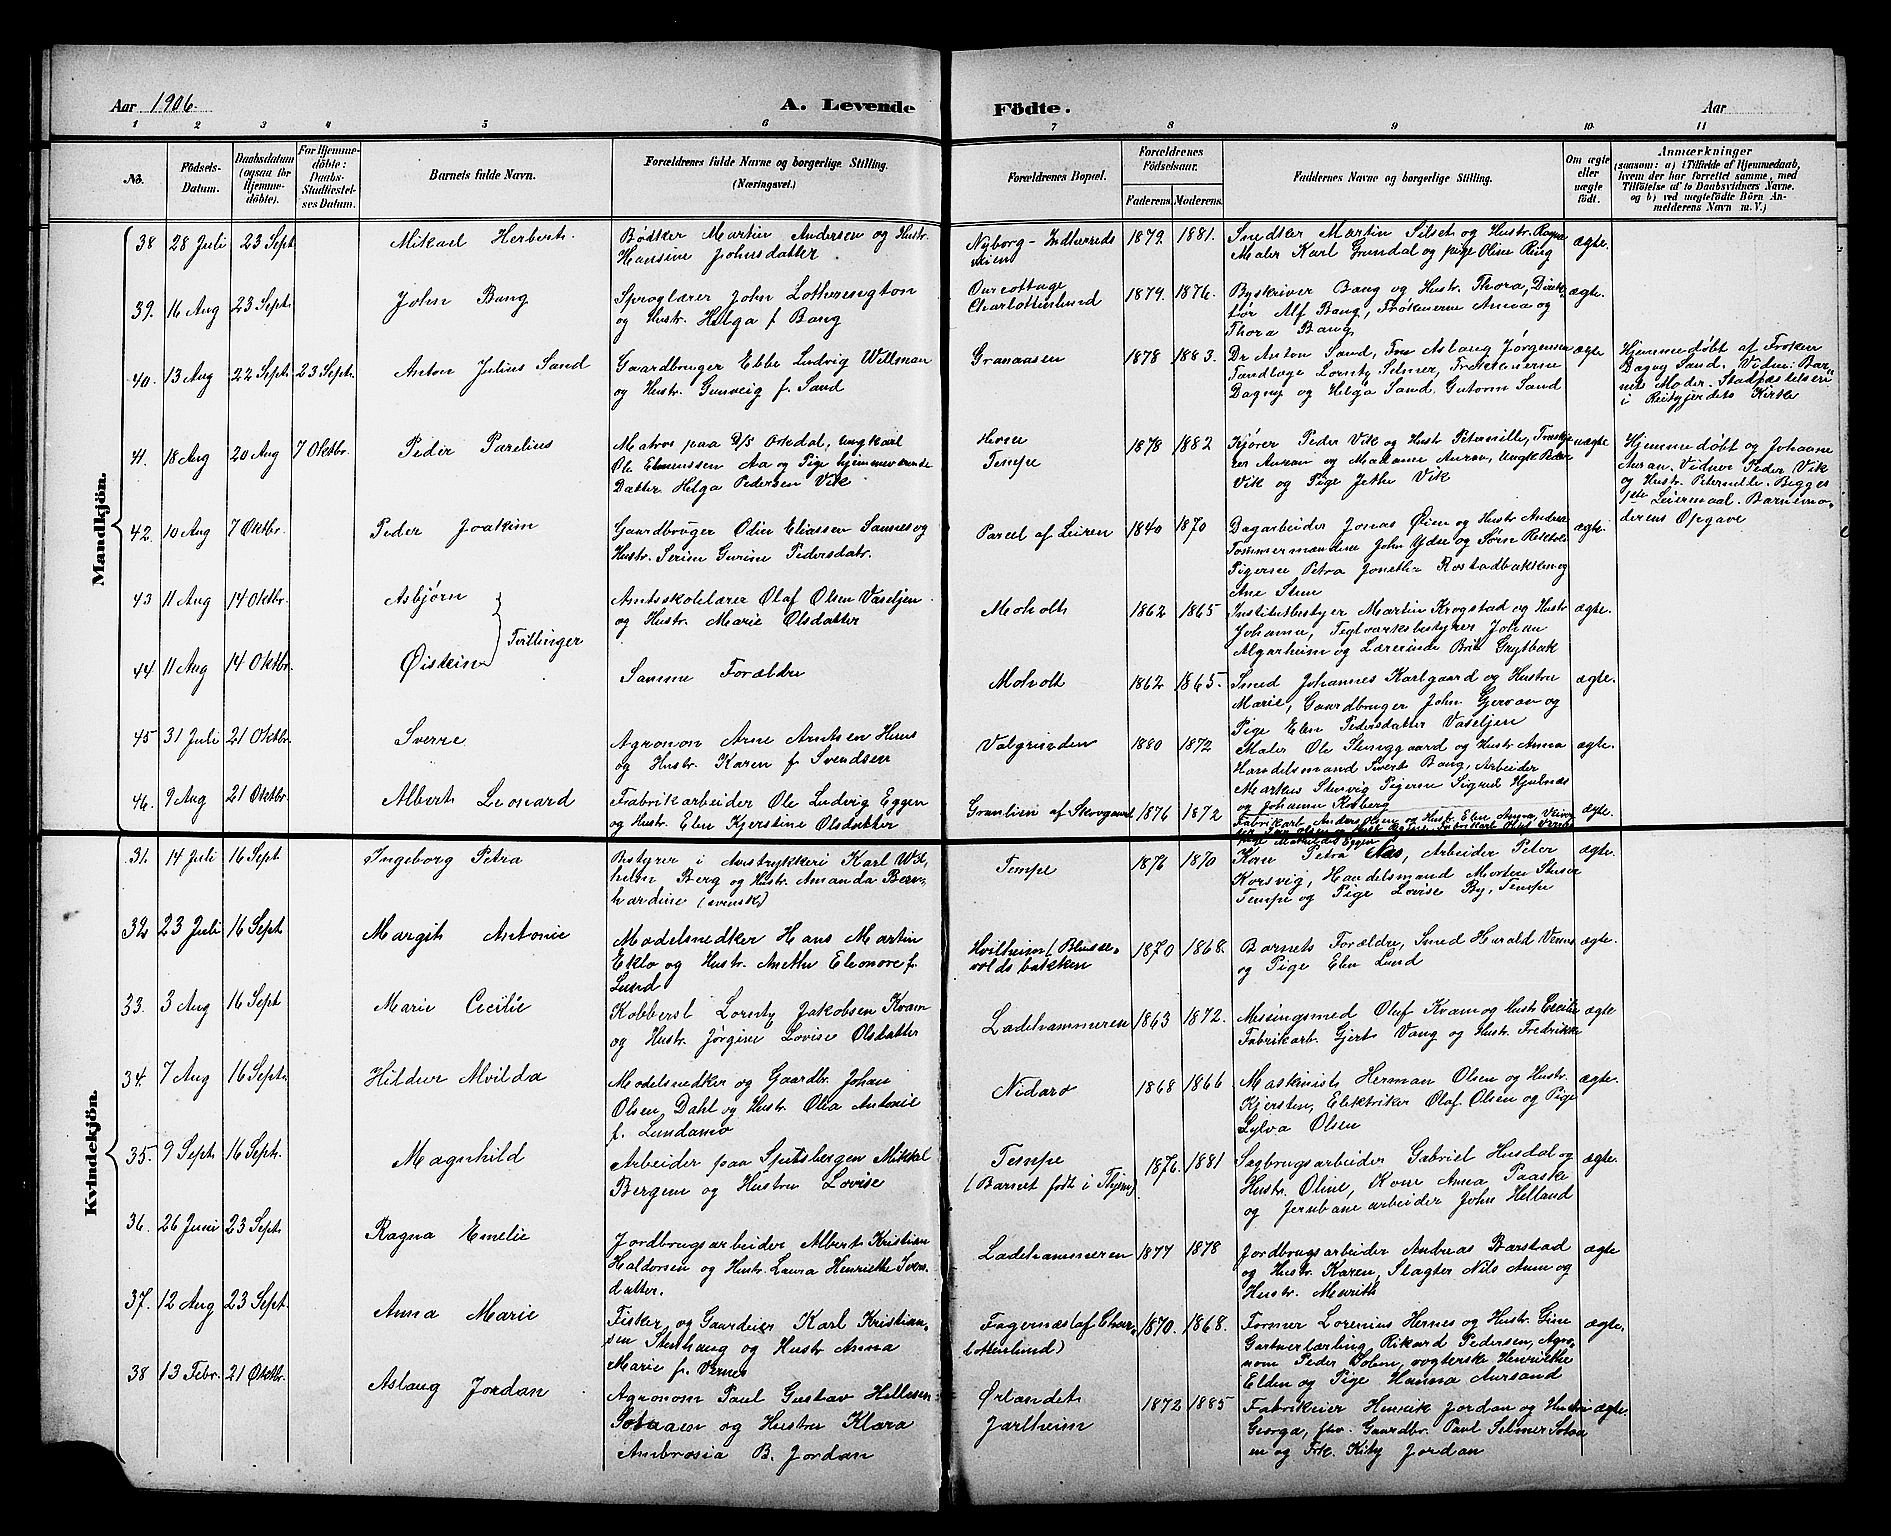 Aar 1906. A. Levende Födte. Aar
1 2 3 4 5 6 7 8 9 10 11
No. Födsels-Datum. Daabsdatum (ogsaa for Hjemmedöbte). For Hjemmedöbte: Daabs-Stadfæstelses Datum. Barnets fulde Navn. Forældrenes fulde Navne og borgerlige Stilling. (Næringsvei.) Forældrenes Bopæl. Forældrenes Födselsaar. Faderens. Moderens. Faddernes Navne og borgerlige Stilling. Om ægte eller uægte födt. Anmærkninger (saasom: a) i Tilfælde af Hjemmedaab, hvem der har forrettet samme, med Tilföielse af to Daabsvidners Navne, og b) ved uægtefödte Börn Anmelderens Navn m. V.)
Mandkjön.
38 28 Juli 23 Sept. Mikael Herbert. Bødker Martin Andersen og Hustr. Nyborg - Indherreds 1879. 1881. Snedker Martin Silset og Hustr. Ragna ægte.
Hansine Johnsdatter veien Maler Karl Grendal og pige Oline Ring
39. 16 Aug 23 Sept. John Bang Sproglærer John Lotherington Ourcottage 1874. 1876. Byskriver Bang og Hustr. Thora, Direk- ægte.
og Hustr. Helga f Bang Charlottenlund tør Alf Bang, Frøknerne Anna og
Thora Bang
40. 13 Aug 22 Sept. 23 Sept. Anton Julius Sand Gaardbruger Ebbe Ludvig Willman Granaasen 1878 1883. Dr Anton Sand, Fru Aslaug Jørgensen ægte Hjemmedøbt af Frøken
og Hustr. Gunveig f. Sand Tandlæge Lorntz Selmer, Frøknerne Dagny Sand. Vidne: Bar-
Dagny og Helga Sand. Gutorm Sand nets Moder. Stadfæstelsen
i Reitgjerdets Kirke
41. 18 Aug 20 Aug 7 Oktbr. Peder Parelius Matros paa D/S Orkdal, ungkarl 1878 1882 Kjører Peder Vik og Hustr Peternille, uægte Hjemmedøbt og Johanne
Ole Elmenssen Aa og Pige hjemmeværende Tempe Aunan og Madame Aunan, Ungk Peder Aunan. Vidner Peder Vik
Datter Helga Pedersen Vik Vik og Pige Jethe Vik og Hustr. Peternille. Begges
1ste Leiermaal. Barnemo-
derens Opgave
42. 10 Aug 7 Oktbr. Peder Joakim Gaardbruger Odin Eliassen Sannes og Parcel af Leiren 1840 1870 Dagarbeider Jonas Øien og Hustr Andrea ægte.
Hustr. Serine Gurine Pedersdatr. Tømmermændene John Ydse og Sørn
Pigerne Petra Jonette Rostadbakken og
Ane Stene
43 11 Aug 14 Oktbr. Asbjørn Amtsskolelærer Olaf Olsen Vaseljen Moholt 1862 1865 Institutbestyrer Martin Krogstad og Hustr ægte.
Tvillinger og Hustr. Marie Olsdatter Johanna, Teglværksbestyrer Johan
Algarheim og Lærerinde Brit Grytbak
44 11 Aug 14 Oktbr. Øistein Samme Forældre Moholt 1862 1865. Smed Johannes Karlgaard og Hustru ægte.
Marie, Gaardbruger John Gjervan og
Pige Elen Pedersdatter Vaseljen
45 31 Juli 21 Oktbr. Sverre Agronom Arne Arntsen Hens Valgrinden 1880 1872 Maler Ole Stenggaard og Hustr Anna ægte.
og Hustr. Karen f. Svendsen Handelsmand Sivert Bang, Arbeider
Markus Stenvig Pigerne Sigrid Hjelnæs
og Johanne Kroberg
46. 9 Aug 21 Oktbr. Albert Leonard Fabrikarbeider Ole Ludvig Eggen Granlien af Skovgaard 1876 1872 Fabrikarb. Anders Olsen og Hustr Elen Anna ægte.
og Hustr. Elen Kjerstine Olsdatter
Kvindekjön.
31. 14 Juli 16 Sept. Ingeborg Petra Bestyrer i Avistrykkeri Karl Wil- Tempe 1876 1870 Kone Petra Aas, Arbeider Peter ægte.
helm Berg og Hustr. Amanda Bern- Korsvig, Handelsmand Morten
hardine (svensk) Tempe og Pige Lovise By, Tempe
32 23 Juli 16 Sept. Margit Antonie Modelsnedker Hans Martin Hvilheim (Blusse- 1870 1868. Barnets Forældre, Smed Harald Vennes ægte.
Eklo og Hustr. Anette Eleonore f. voldsbakken og Pige Elen Lund
Lund
33. 3 Aug 16 Sept Marie Cecilie Kobbersl. Lorntz Jakobsen Kvam Ladehammeren 1863 1872. Messingsmed Oluf Kvam og Hustr Cecilie ægte
og Hustr. Jørgine Lovise Olsdatter Fabrikarb. Gjert Vang og Hustr. Fredrikke
34. 7 Aug 16 Sept. Hildur Alvilda Modelsnedker og Gaardbr. Johan Nidarø 1868 1866 Maskinist Herman Olsen og Hustr. ægte.
Olsen Dahl og Hustr. Olia Antonie Kjersten, Elektriker Olaf Olsen og Pige
f. Lundamo Sylva Olsen
35. 9 Sept. 16 Sept. Magnhild Arbeider paa Spitsbergen Mikkel Tempe 1876. 1881 Sagbrugsarbeider Gabriel Husdal og ægte.
Bergem og Hustru Lovise (Barnet født i Thjem) Hustr. Oline, Kone Anna Paaske
og Jernbanearbeider John Helland
36. 26 Juni 23 Sept. Ragna Emelie Jordbrugsarbeider Albert Kristian Ladehammeren 1877 1878 Jordbrugsarbeider Andreas Barstad ægte
Haldorsen og Hustr. Laura Henriette Svens- og Hustr. Karen, Slagter Nils Aune og
datter. Hustr. Merith
37. 12 Aug 23 Sept. Anna Marie Fisker og Gaardeier Karl Kristian- Fagernæs (af Char- 1870. 1868. Former Lorenius Hernes og Hustr. Gine ægte.
sen Stenhaug og Hustr Anna lottenlund) Gartnerlærling Rikard Pedersen, Agro-
Marie f. Vernes nom Peder Solem, Henriette
Elden og Pige Hanna Aursand
38 13 Febr. 21 Oktbr. Aslaug Jordan Agronom Paul Gustav Hellesen Ørlandet 1872 1885 Fabrikeier Henrik Jordan og Hustru ægte.
Sotaaen og Hustru Klara Jarlheim Georga, Gaardbr. Paul Selmer Sotaa
Ambrosia B. Jordan en og Frk. Kity Jordan